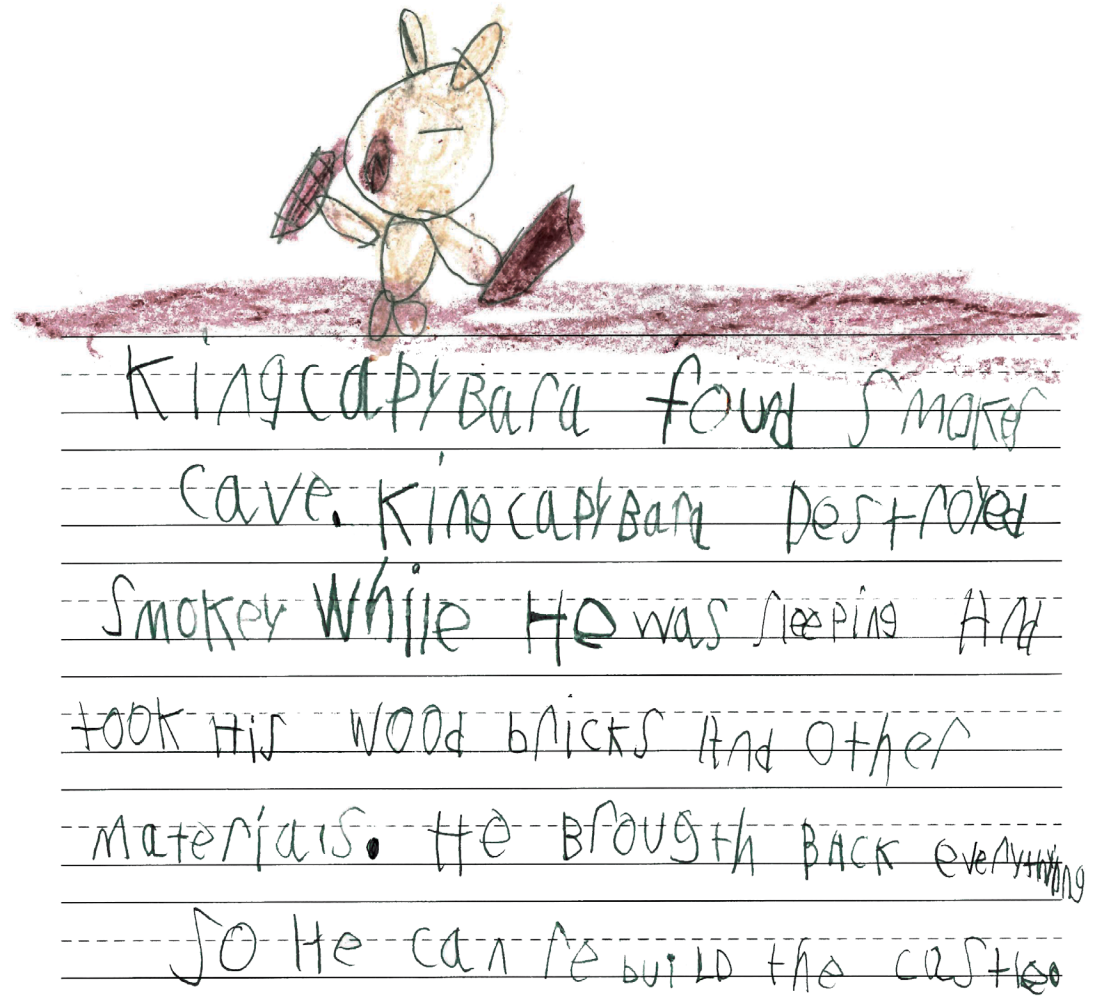 KingcapyBara found Smokes
Cave. KingcapyBara Destroyed
Smokey While He was sleeping And
took His wood bricks And other
Materials. He Brougth BACK everything
So He can rebuiLD the castleo